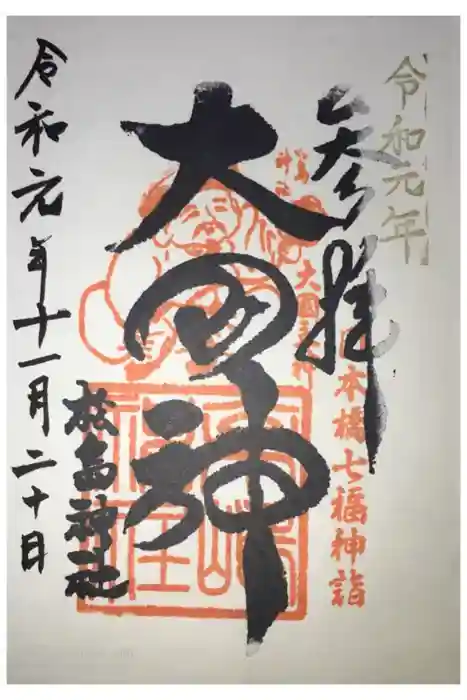 令和元年
参拝
日本橋七福神詣
大国主神
大国神
松島神社
令和元年十一月二十日